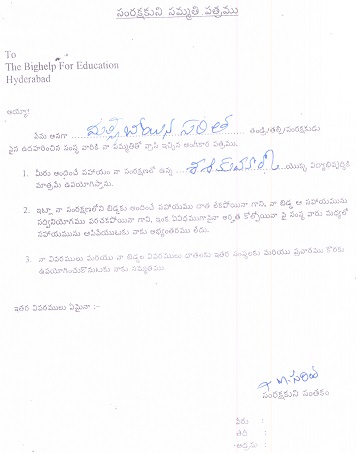 సంరక్షకుని సమ్మతి పత్రము
To
The Bighelp For Education
Hyderabad
అయ్యా!
నేను అనగా ............ సరిత ............ తండ్రి/తల్లి/సంరక్షకుడు
పైన ఉదహరించిన సంస్థ వారికి నా సమ్మతితో వ్రాసి ఇచ్చిన అంగీకార పత్రము.
1. మీరు అందించే సహాయం నా సంరక్షణలో ఉన్న ............ యొక్క విద్యాభివృద్ధికి
మాత్రమే ఉపయోగిస్తాను.
2. ఇట్లా నా సంరక్షణలోని బిడ్డకు అందించే సహాయము దాత లేకపోయినా గాని, నా బిడ్డ ఆ సహాయమును
సద్వినియోగము పరచకపోయినా గాని, ఇంక ఏవిధముగానైనా అర్హత కోల్పోయినా పై సంస్థ వారు మధ్యలో
సహాయమును ఆపివేయుటకు నాకు అభ్యంతరము లేదు.
3. నా వివరములు మరియు నా బిడ్డల వివరములు దాతలకు ఇతర సంస్థలకు మరియు ప్రచారము కొరకు
ఉపయోగించుకొనుటకు నాకు సమ్మతము.
ఇతర వివరములు ఏమైనా :-
సంరక్షకుని సంతకం
పేరు :
తేది :
అడ్రసు :